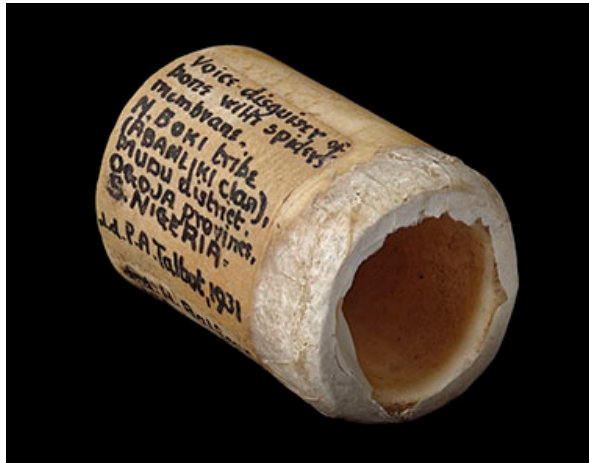 Voice disguiser of
bone with spider's
membrane.
N. BOKI tribe
(ABANLIKI Clan),
MUDU district.
OGOJA province,
S. NIGERIA.
d.d. P.A. Talbot, 1931